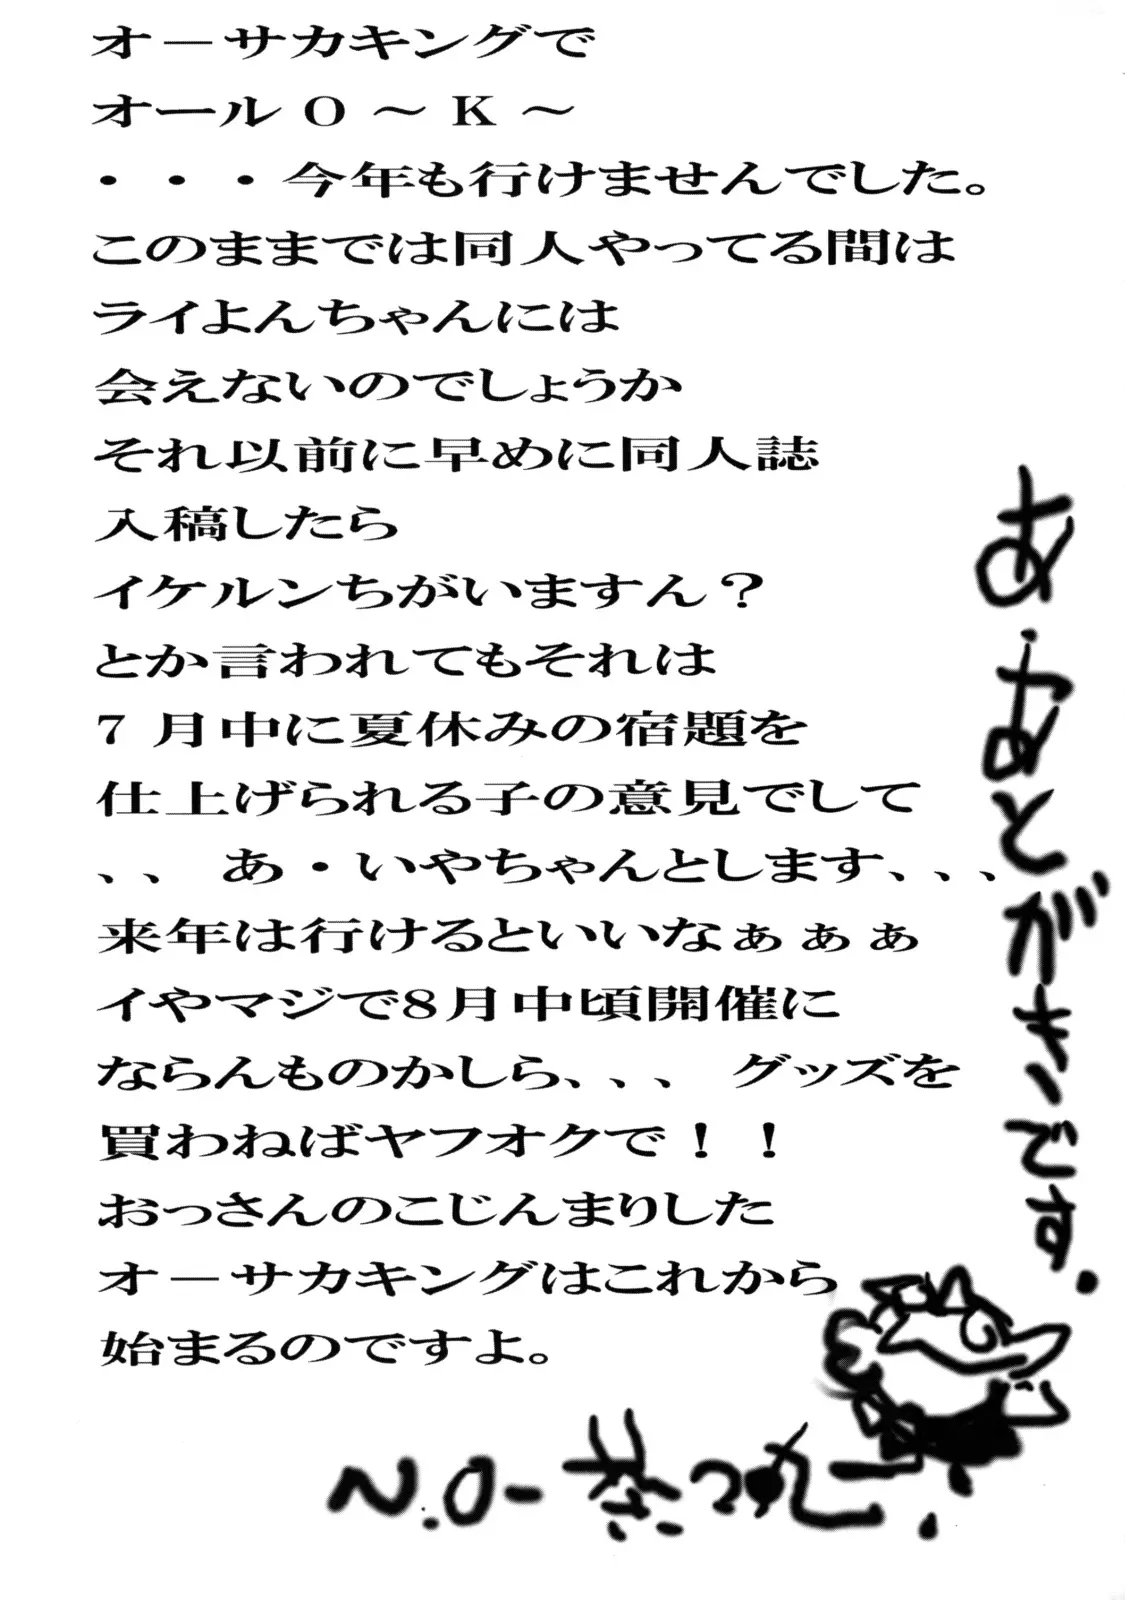 オーサカキングで
オール O ～ K ～
・・・今年も行けませんでした。
このままでは同人やってる間は
ライよんちゃんには
会えないのでしょうか
それ以前に早めに同人誌
入稿したら
イケルンちがいますん？
とか言われてもそれは
7 月中に夏休みの宿題を
仕上げられる子の意見でして
、、 あ・いやちゃんとします、、、
来年は行けるといいなぁぁぁ
イやマジで8月中頃開催に
ならんものかしら、、、 グッズを
買わねばヤフオクで！！
おっさんのこじんまりした
オーサカキングはこれから
始まるのですよ。
あ・あとがきです.
N.O-